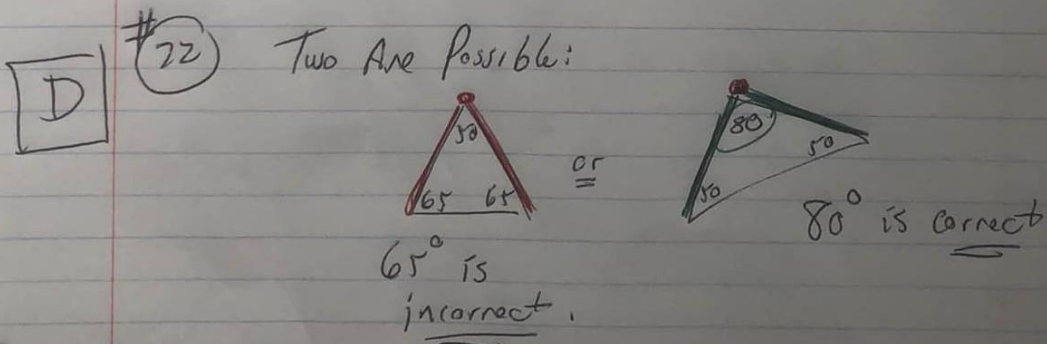 #22 Two Are Possible:
D
50
65 65
or
80
50
50
65° is
incorrect.
80° is correct